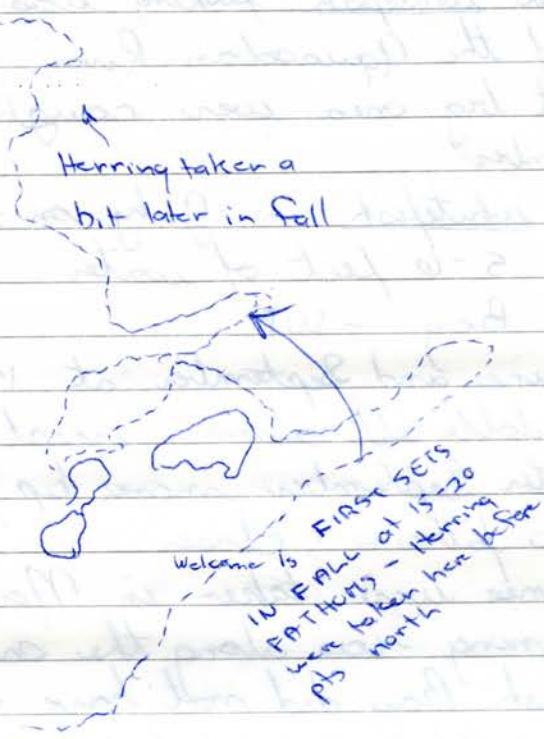 Herring taken a
bit later in fall
Welcome Is
FIRST SETS
IN FALL at 15-20
FATHOMS - Herring
were taken here before
pts north